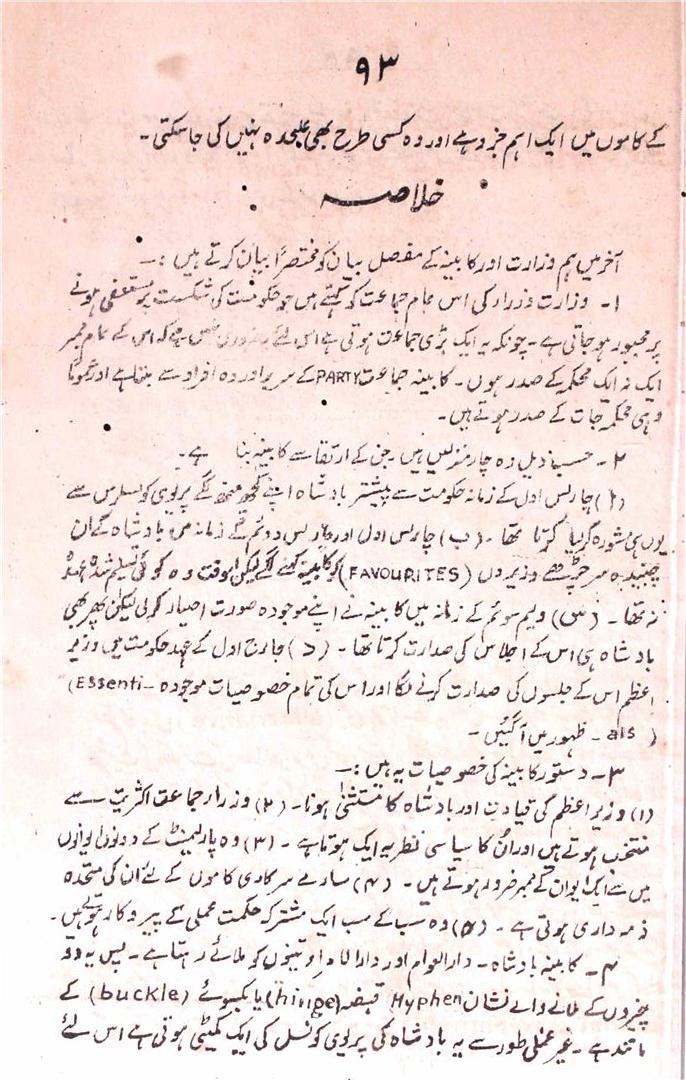 ۹۳
کے کاموں میں ایک اہم جزو ہے اور وہ کسی طرح بھی علیحدہ نہیں کی جاسکتی۔
خلاصہ :
آخر میں ہم وزارت اور کابینہ کے مفصل بیان کو مختصراً بیان کرتے ہیں :۔
۱۔ وزارت وزراء کی اس تمام جماعت کو کہتے ہیں جو حکومت کی شکست پر مستعفی ہونے
پر مجبور ہوجاتی ہے۔ چونکہ یہ ایک بڑی جماعت ہوتی ہے اس لئے یہ ضروری نہیں ہے کہ اس کے تمام ممبر
ایک نہ ایک محکمہ کے صدر ہوں۔ کابینہ جماعت PARTY کے سربرآوردہ افراد سے بنتا ہے اور عموماً
وہی محکمہ جات کے صدر ہوتے ہیں۔
۲۔ حسب ذیل وہ چار منزلیں ہیں جن کے ارتقا سے کابینہ بنا ہے۔
(۱) چارلس اول کے زمانہ حکومت سے پیشتر بادشاہ اپنے کچھ منھ لگے پریوی کونسلرس سے
یوں ہی مشورہ کرلیا کرتا تھا۔ (ب) چارلس اول اور چارلس دوئم کے زمانہ میں بادشاہ کے ان
چنیدہ سر چڑھے وزیروں (FAVOURITES) کو کابینہ کہنے لگے لیکن اسوقت وہ کوئی تسلیم شدہ عہدہ
نہ تھا۔ (س) ولیم سوئم کے زمانہ میں کابینہ نے اپنے موجودہ صورت اختیار کرلی لیکن پھر بھی
بادشاہ ہی اس کے اجلاس کی صدارت کرتا تھا۔ (د) جارج اول کے عہد حکومت میں وزیر
اعظم اس کے جلسوں کی صدارت کرنے لگا اور اس کی تمام خصوصیات موجودہ (Essenti-
als) ۔ ظہور میں آگئیں۔
۳۔ دستور کابینہ کی خصوصیات یہ ہیں :۔
(۱) وزیر اعظم کی قیادت اور بادشاہ کا مستثنیٰ ہونا۔ (۲) وزراء جماعت اکثریت سے
منتخب ہوتے ہیں اور انُ کا سیاسی نظریہ ایک ہوتا ہے۔ (۳) وہ پارلیمنٹ کے دونوں ایوانوں
میں سے ایک ایوان کے ممبر ضرور ہوتے ہیں۔ (۴) سارے سرکاری کاموں کے لئے ان کی متحدہ
ذمہ داری ہوتی ہے۔ (۵) وہ سب کے سب ایک مشترکہ حکمت عملی کے پیرو کار ہوتے ہیں۔
۴۔ کابینہ بادشاہ۔ دارالعوام اور دارالامراء تینوں کو ملائے رہتا ہے۔ پس یہ دو
چیزوں کے ملانے والے نشان Hyphen قبضہ (hinge) یا بکسوئے (buckle) کے
مانند ہے۔ غیر عملی طور سے یہ بادشاہ کی پریوی کونسل کی ایک کمیٹی ہوتی ہے اس لئے